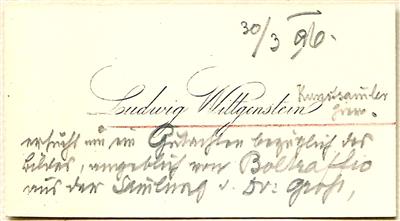 30/3 96.
Ludwig Wittgenstein
Kunstsamler
Wien.
ersucht um ein Gutachten bezüglich des
Bildes, angeblich von Boltraffio
aus der Samlung v. Dr. Groß,